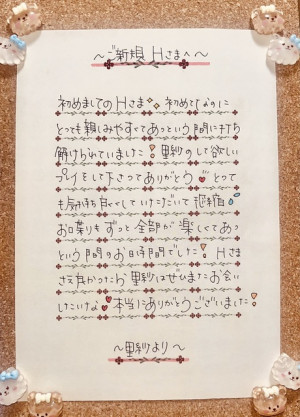 〜ご新規Hさまへ〜
初めましてのHさま 初めてなのに
とっても親しみやすくてあっという間に打ち
解けられていました！里紗のして欲しい
プレイをして下さってありがとう とって
も気持ち良くしていただいて 恐縮
お喋りもずっと全部が楽しくてあっ
という間のお時間でした！Hさま
さえ良かったら里紗はぜひまたお会い
したいな 本当にありがとうございました！
〜里紗より〜